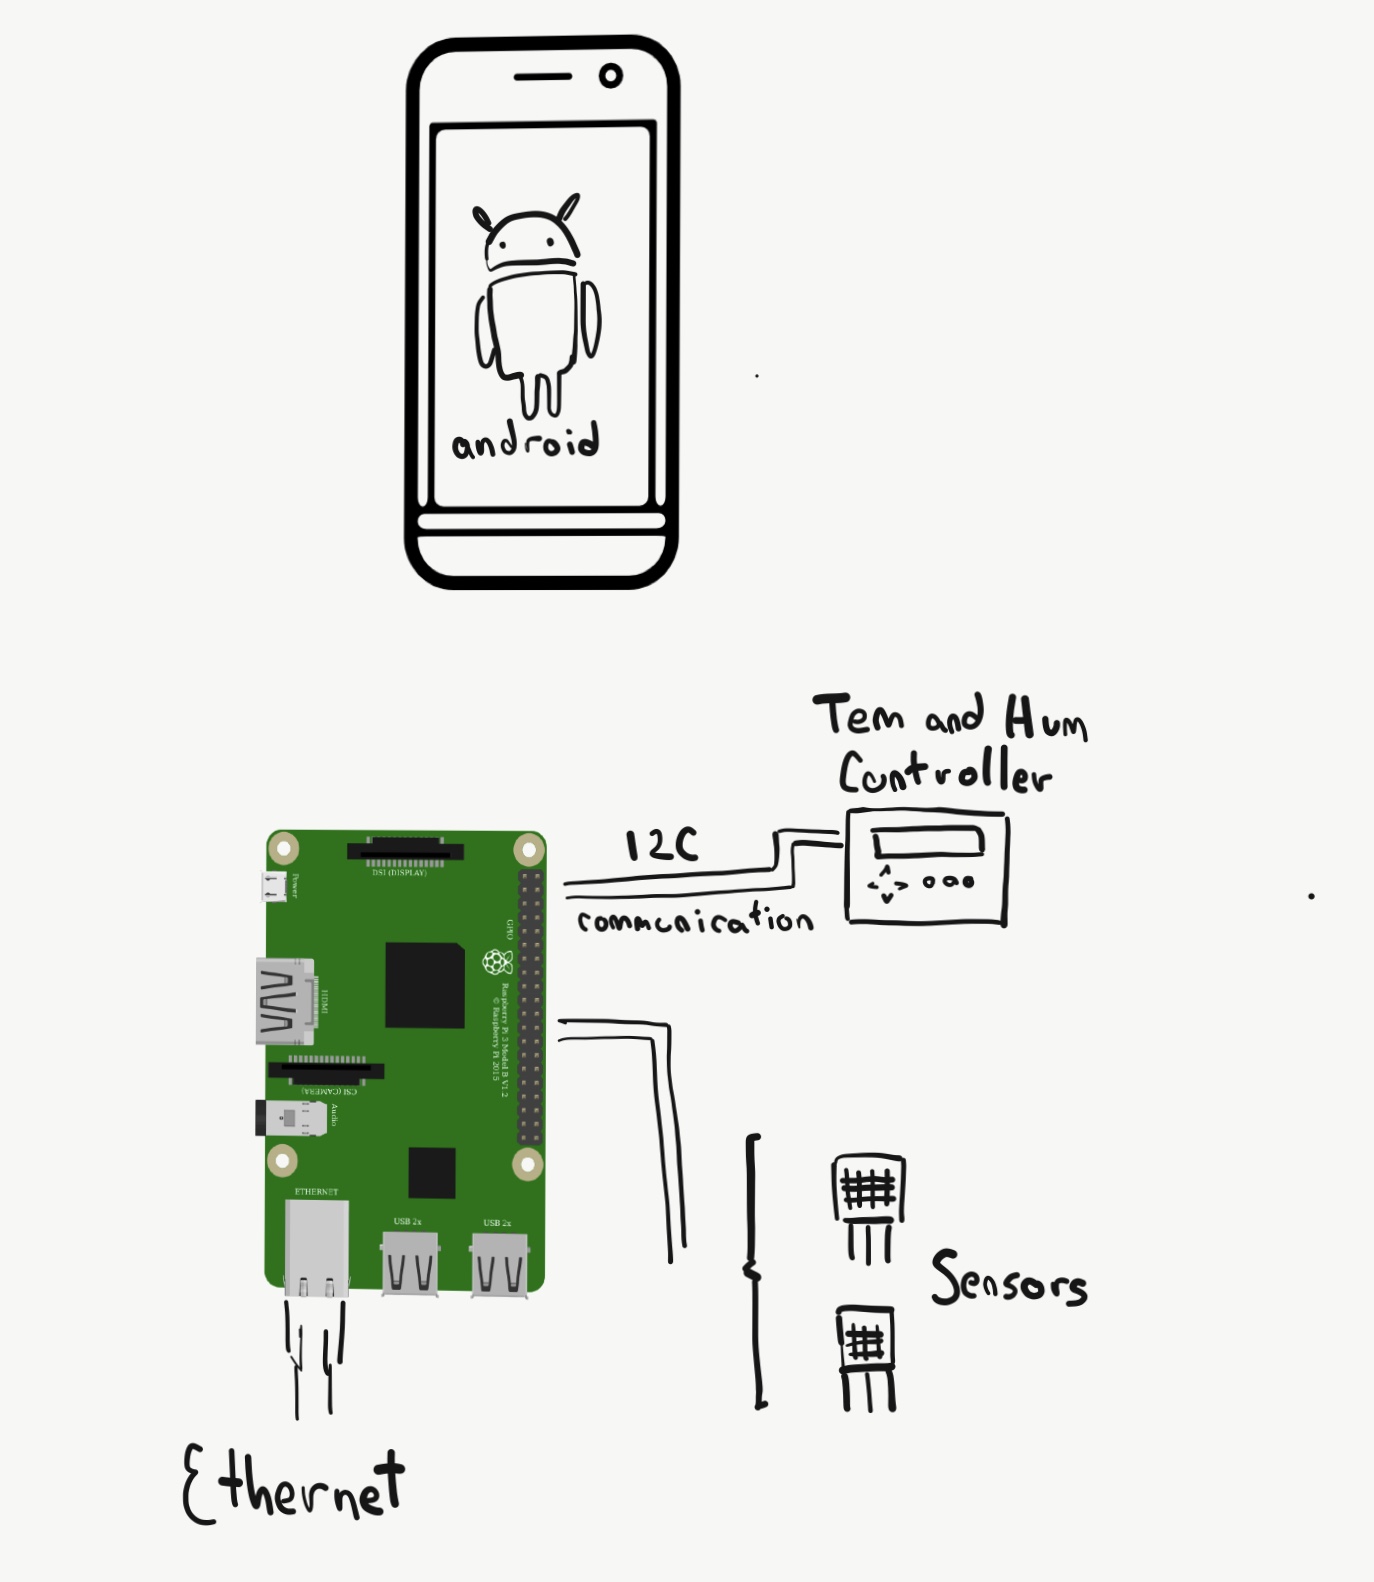 android
Tem and Hum
Controller
I2C
communication
DSI (DISPLAY)
Power
GPIO
HDMI
Raspberry Pi 3 Model B V1.2
© Raspberry Pi 2015
CSI (CAMERA)
Audio
ETHERNET
USB 2x
USB 2x
Sensors
Ethernet